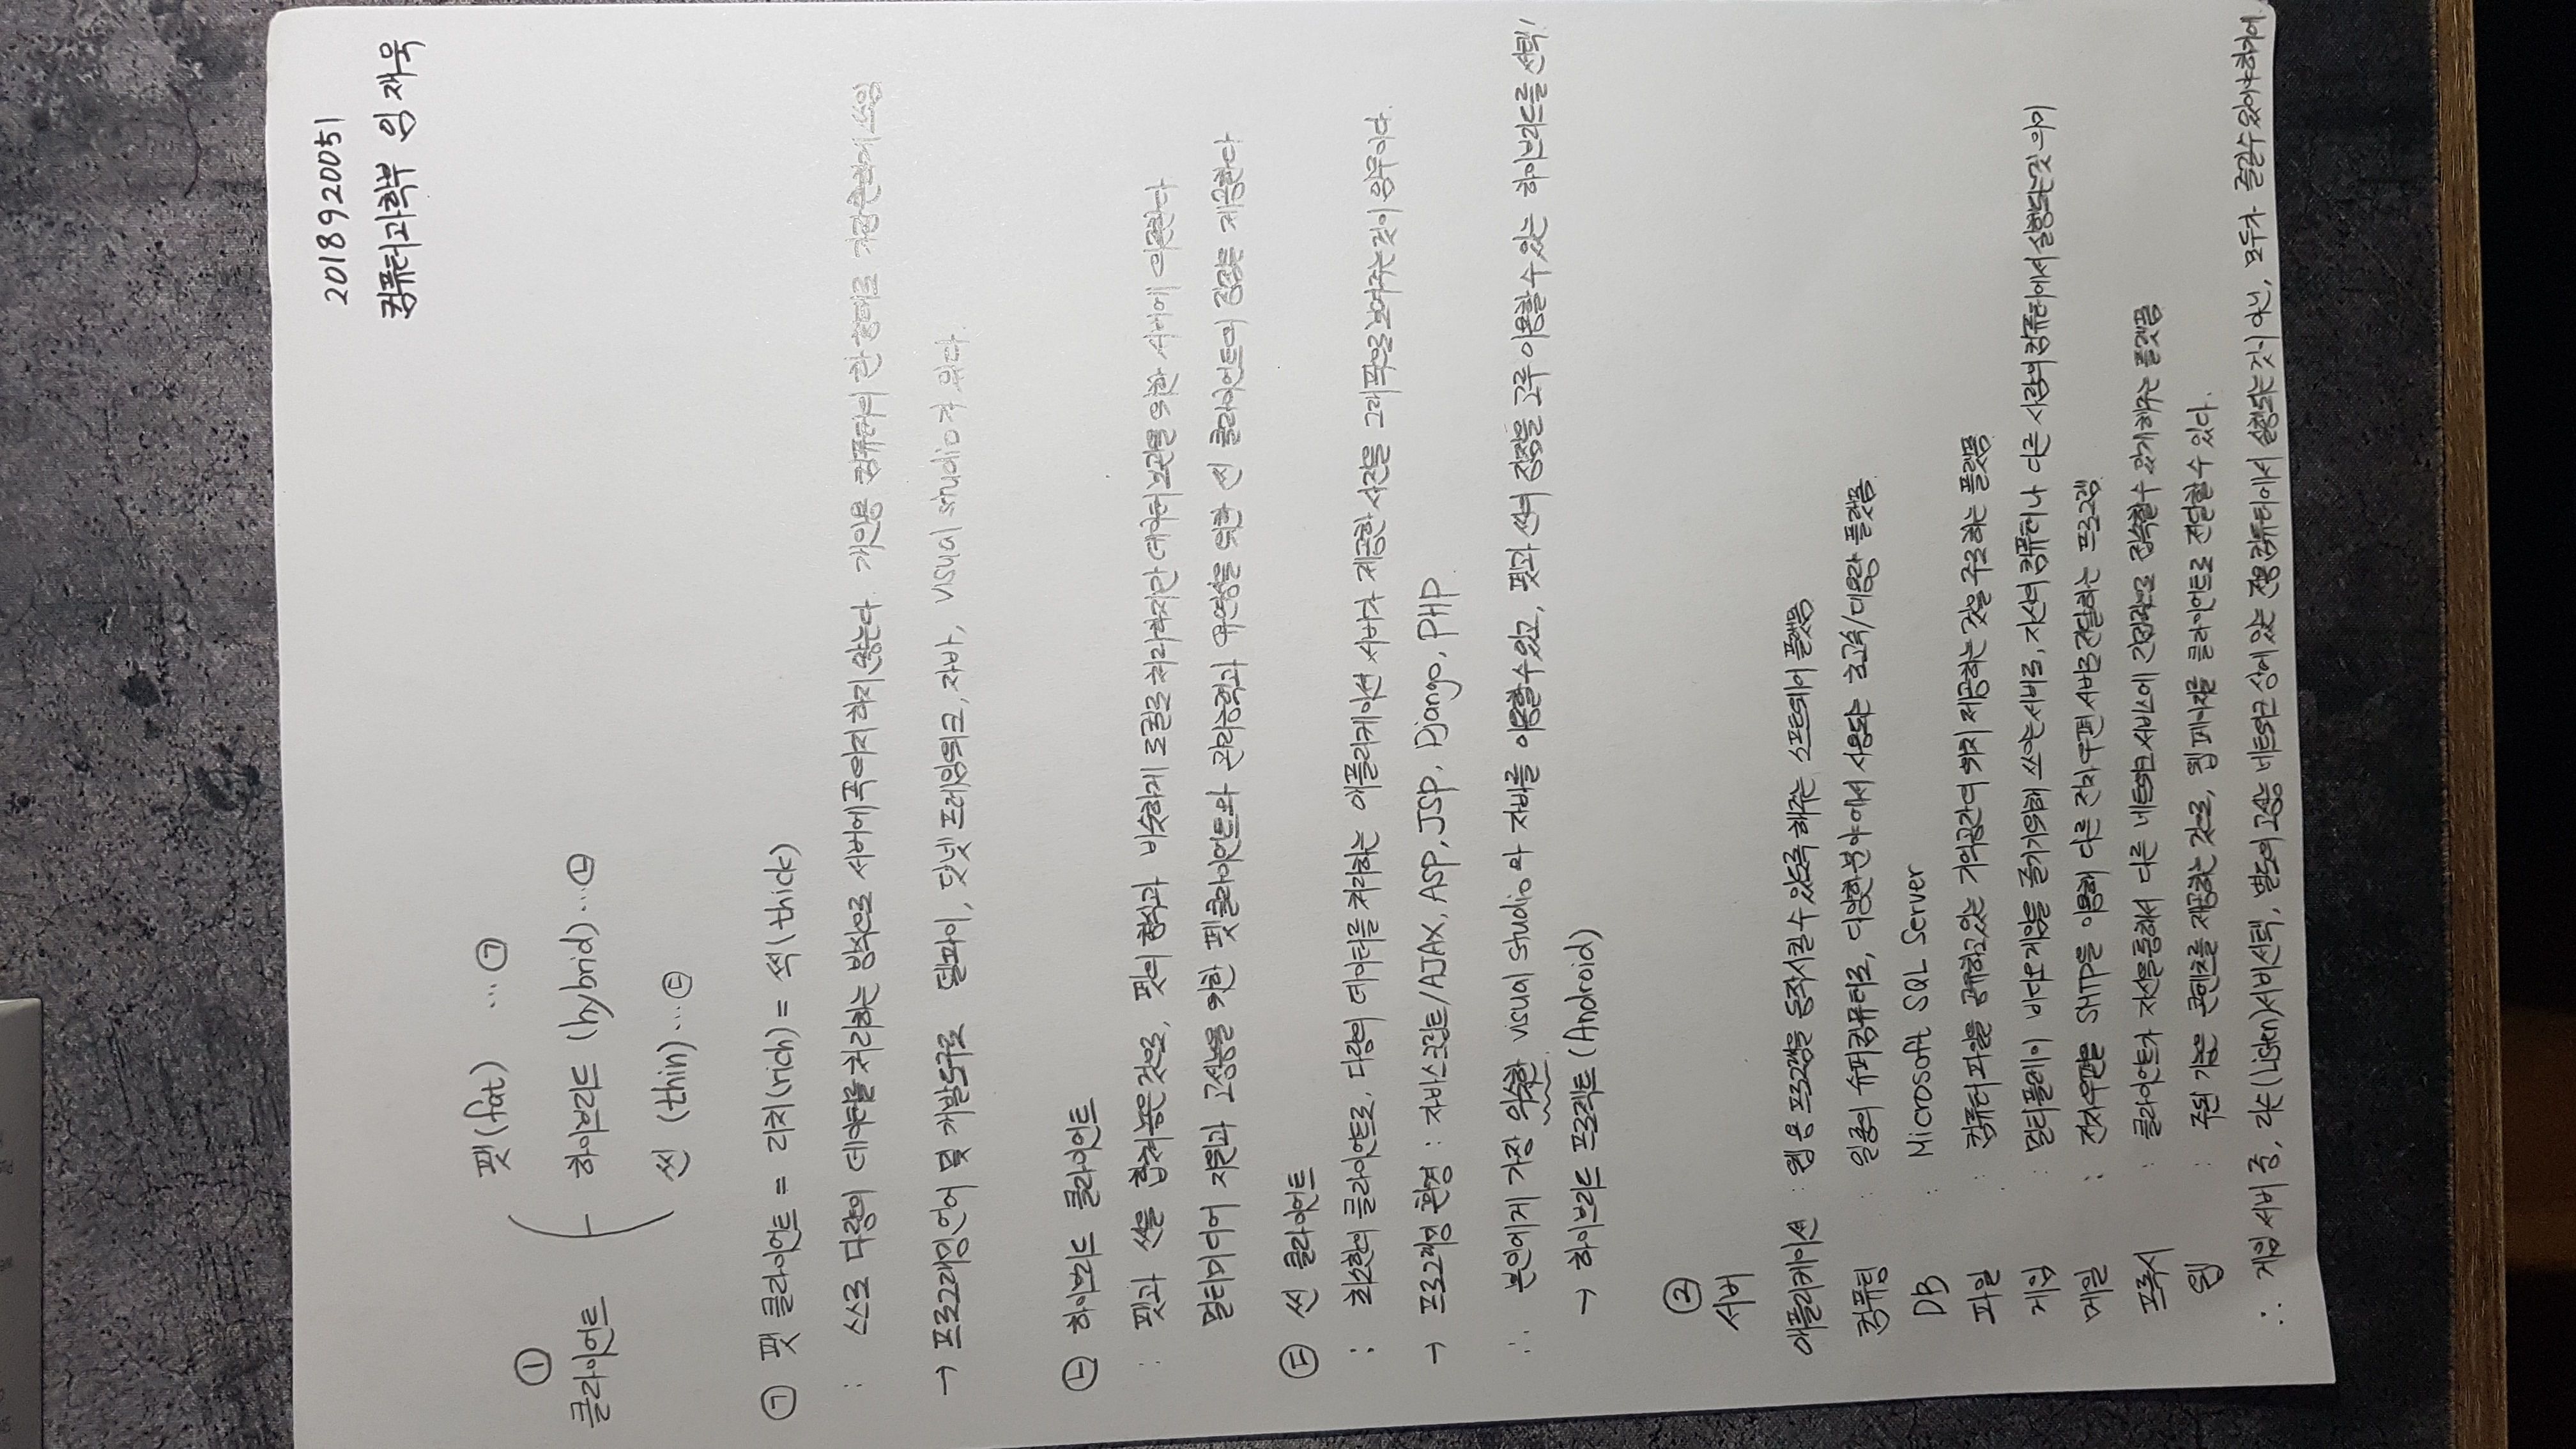 2018920051
컴퓨터과학부 임재욱
①
클라이언트
팻(fat) … ㉠
하이브리드 (hybrid) … ㉡
씬 (thin) … ㉢
㉠ 팻 클라이언트 = 리치(rich) = 씩(thick)
: 스스로 다량의 데이터를 처리하는 방식으로 서버에 꼭 의지하지 않는다. 개인용 컴퓨터의 한 형태로 가장 흔하게 쓰임
→ 프로그래밍 언어 및 개발도구로 델파이, 닷넷 프레임워크, 자바, visual studio가 있다.
㉡ 하이브리드 클라이언트
: 팻과 씬을 합쳐놓은 것으로, 팻의 형식과 비슷하게 로컬로 처리하지만 데이터 보관을 위한 서버에 의존한다
멀티미디어 지원과 고성능을 위한 팻 클라이언트와 관리능력과 유연성을 위한 씬 클라이언트의 장점을 제공한다
㉢ 씬 클라이언트
: 최소한의 클라이언트로, 다량의 데이터를 처리하는 애플리케이션 서버가 제공한 사진을 그래픽으로 보여주는 것이 임무이다.
→ 프로그래밍 환경 : 자바스크립트/AJAX, ASP, JSP, Django, PHP
∴ 본인에게 가장 익숙한 visual studio와 자바를 이용할 수 있고, 팻과 씬의 장점을 고루 이용할 수 있는 하이브리드를 선택!
→ 하이브리드 프로젝트 (Android)
②
서버
애플리케이션 : 웹 응용 프로그램을 동작시킬 수 있도록 해주는 소프트웨어 플랫폼
컴퓨팅 : 일종의 슈퍼컴퓨터로, 다양한 분야에서 사용되는 초고속/대용량 플랫폼
DB : Microsoft SQL Server
파일 : 컴퓨터 파일을 공유하고 있는 기억공간의 위치 제공하는 것을 주로 하는 플랫폼
게임 : 멀티플레이 비디오 게임을 즐기기 위해 쓰이는 서버로, 자신의 컴퓨터나 다른 사람의 컴퓨터에서 실행되는 것 의미
메일 : 전자우편을 SMTP을 이용해 다른 전자우편 서버로 전달하는 프로그램
프록시 : 클라이언트가 자신을 통해서 다른 네트워크 서비스에 간접적으로 접속할 수 있게 해주는 플랫폼
웹 : 주된 기능은 콘텐츠를 제공하는 것으로, 웹 페이지를 클라이언트로 전달할 수 있다.
∴ 게임 서버 중, 리슨(Listen)서버 선택, 별도의 고성능 네트워크 상에 있는 전용 컴퓨터에서 실행되는 것이 아닌, 모두가 즐길 수 있어야 하기에